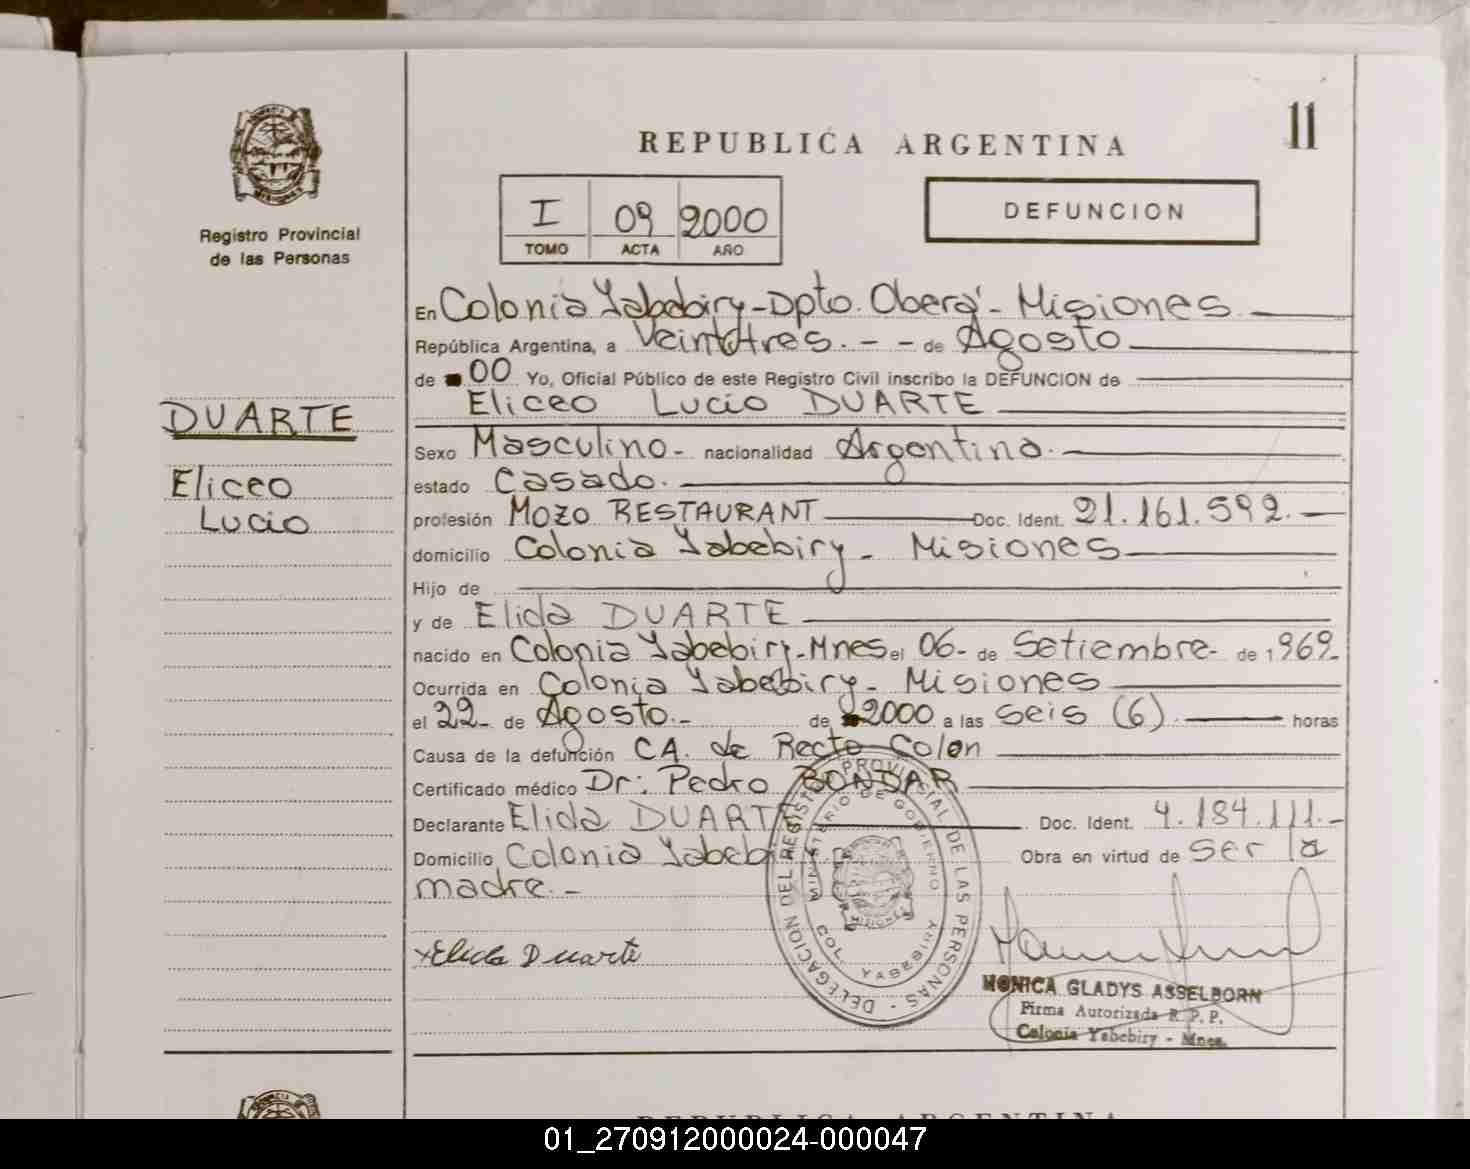 11
REPUBLICA ARGENTINA
Registro Provincial
de las Personas
I 09 2000
TOMO ACTA AÑO
DEFUNCION
DUARTE
Eliceo
Lucio
En Colonia Yabebiry - Dpto. Oberá - Misiones
República Argentina, a Veintitres. - - de Agosto
de 00 Yo, Oficial Público de este Registro Civil inscribo la DEFUNCION de
Eliceo Lucio DUARTE
Sexo Masculino - nacionalidad Argentina.
estado Casado.
profesión MOZO RESTAURANT Doc. Ident. 21.161.592.
domicilio Colonia Yabebiry - Misiones
Hijo de
y de Elida DUARTE
nacido en Colonia Yabebiry - Mnes el 06 - de Setiembre - de 1969
Ocurrida en Colonia Yabebiry - Misiones
el 22 - de Agosto. - de 2000 a las seis (6). horas
Causa de la defunción CA. de Recto Colon
Certificado médico Dr: Pedro BONDAR
Declarante Elida DUARTE Doc. Ident. 4.184.111. -
Domicilio Colonia Yabebiry Obra en virtud de ser la
madre. -
Elida Duarte
DELEGACION DEL REGISTRO PROVINCIAL DE LAS PERSONAS -
MINISTERIO DE GOBIERNO
MISIONES
COL. YABEBIRY
MONICA GLADYS ASSELBORN
Firma Autorizada R. P. P.
Colonia Yabebiry - Mnes.
REPUBLICA ARGENTINA
01_270912000024-000047